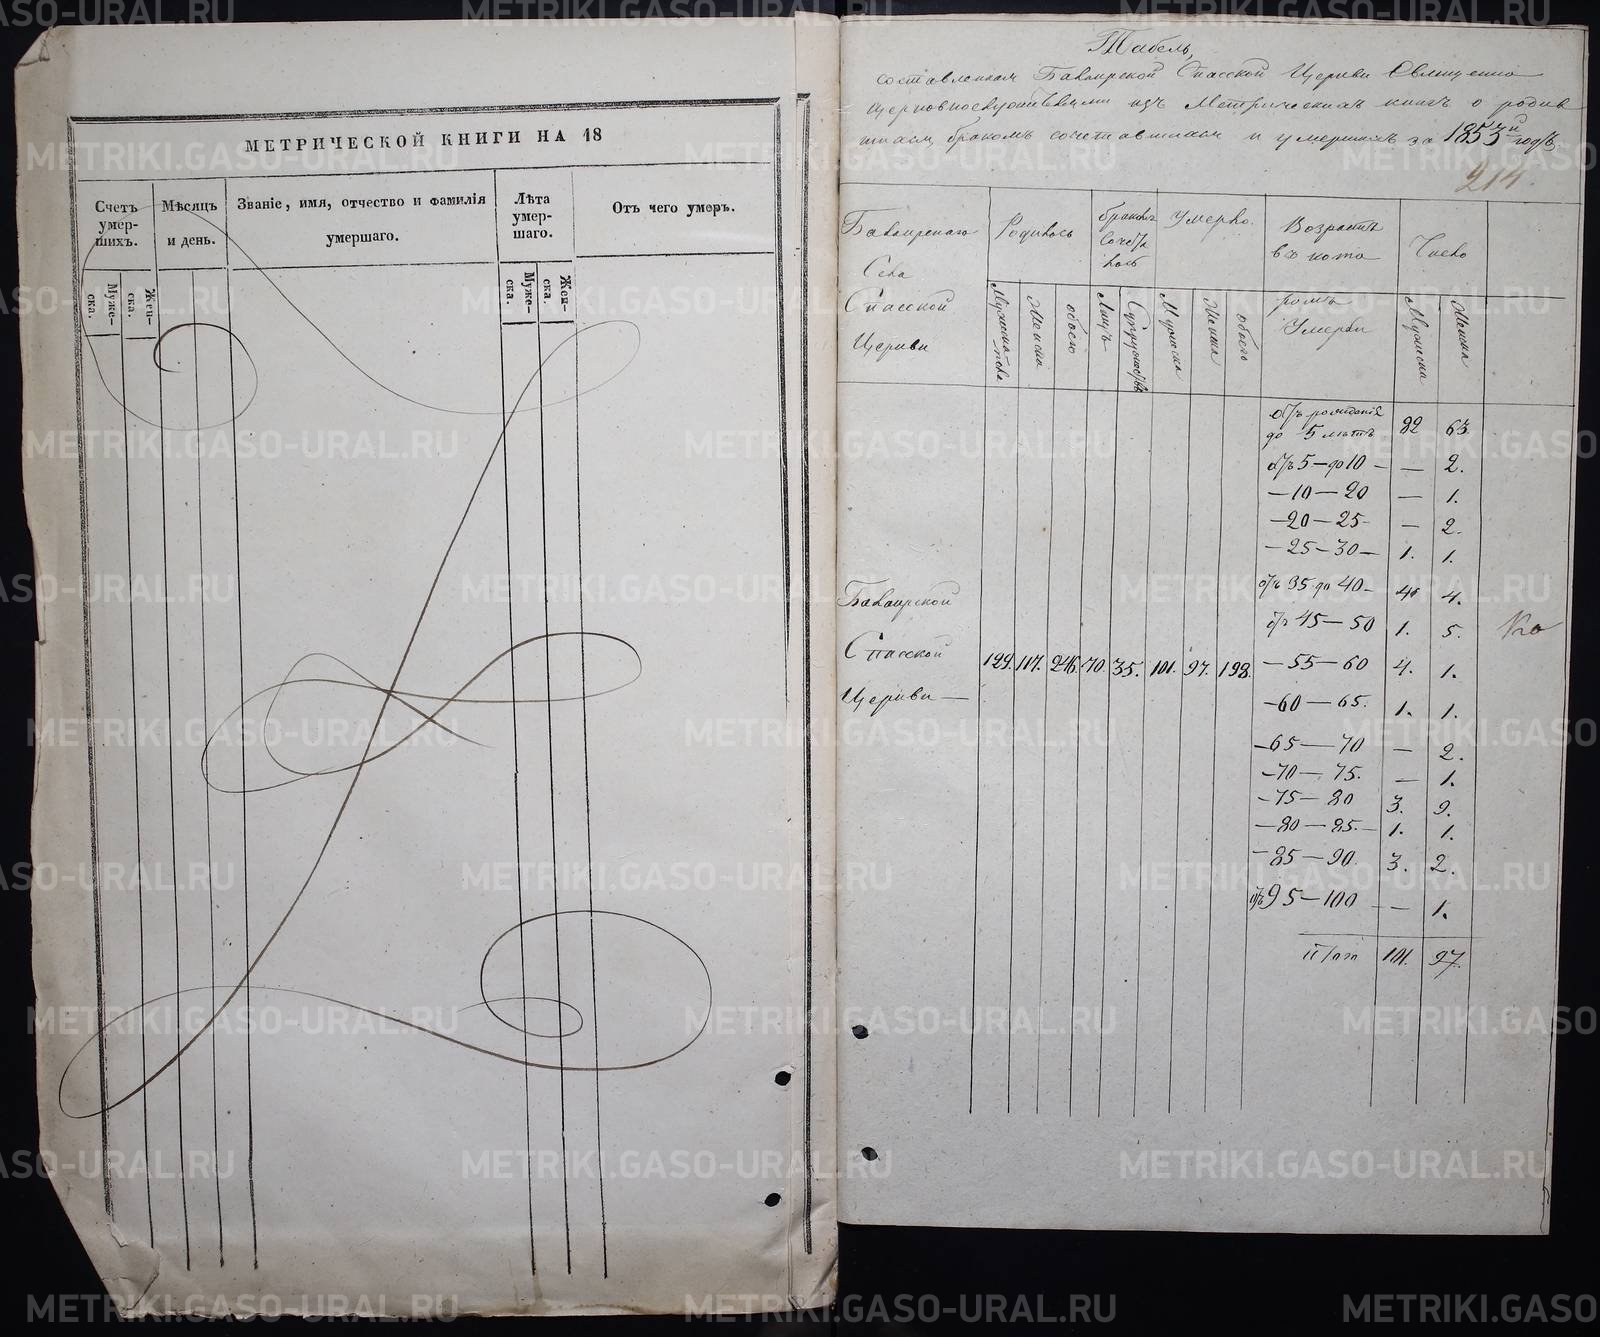 МЕТРИЧЕСКОЙ КНИГИ НА 18
Счетъ умер-шихъ.
Муже-ска.
Жен-ска.
Мѣсяцъ и день.
Званіе, имя, отчество и фамилія умершаго.
Лѣта умер-шаго.
Муже-ска.
Жен-ска.
Отъ чего умеръ.
Табель,
составленная Спасской Церкви Священно
церковнослужителями изъ Метрическихъ книгъ о родив
шихся, бракомъ сочетавшихся и умершихъ за 1853й годъ.
214
Села
Спасской
Церкви
Родилось
Мужеска пола
Женска
обоего
бракомъ
Сочета
лось
Лицъ
Супружествъ
Умерло.
Мужеска
Женска
обоего
Возрастъ
въ кото
ромъ
Умерли
Число
Мужеска
Женска
отъ рожденія
до 5 лѣтъ 82 63
отъ 5 — до 10 — — 2.
— 10 — 20 — 1.
— 20 — 25 — 2.
— 25 — 30 — 1. 1.
отъ 35 до 40 — 4. 4.
отъ 45 — 50 1. 5.
Спасской
Церкви —
129. 117. 246. 70. 35. 101. 97. 198.
— 55 — 60 4. 1.
— 60 — 65. 1. 1.
— 65 — 70 — 2.
— 70 — 75. — 1.
— 75 — 80 3. 9.
— 80 — 85. — 1. 1.
— 85 — 90. 3. 2.
отъ 95 — 100 — — 1.
Итого 101. 97.
METRIKI.GASO-URAL.RU